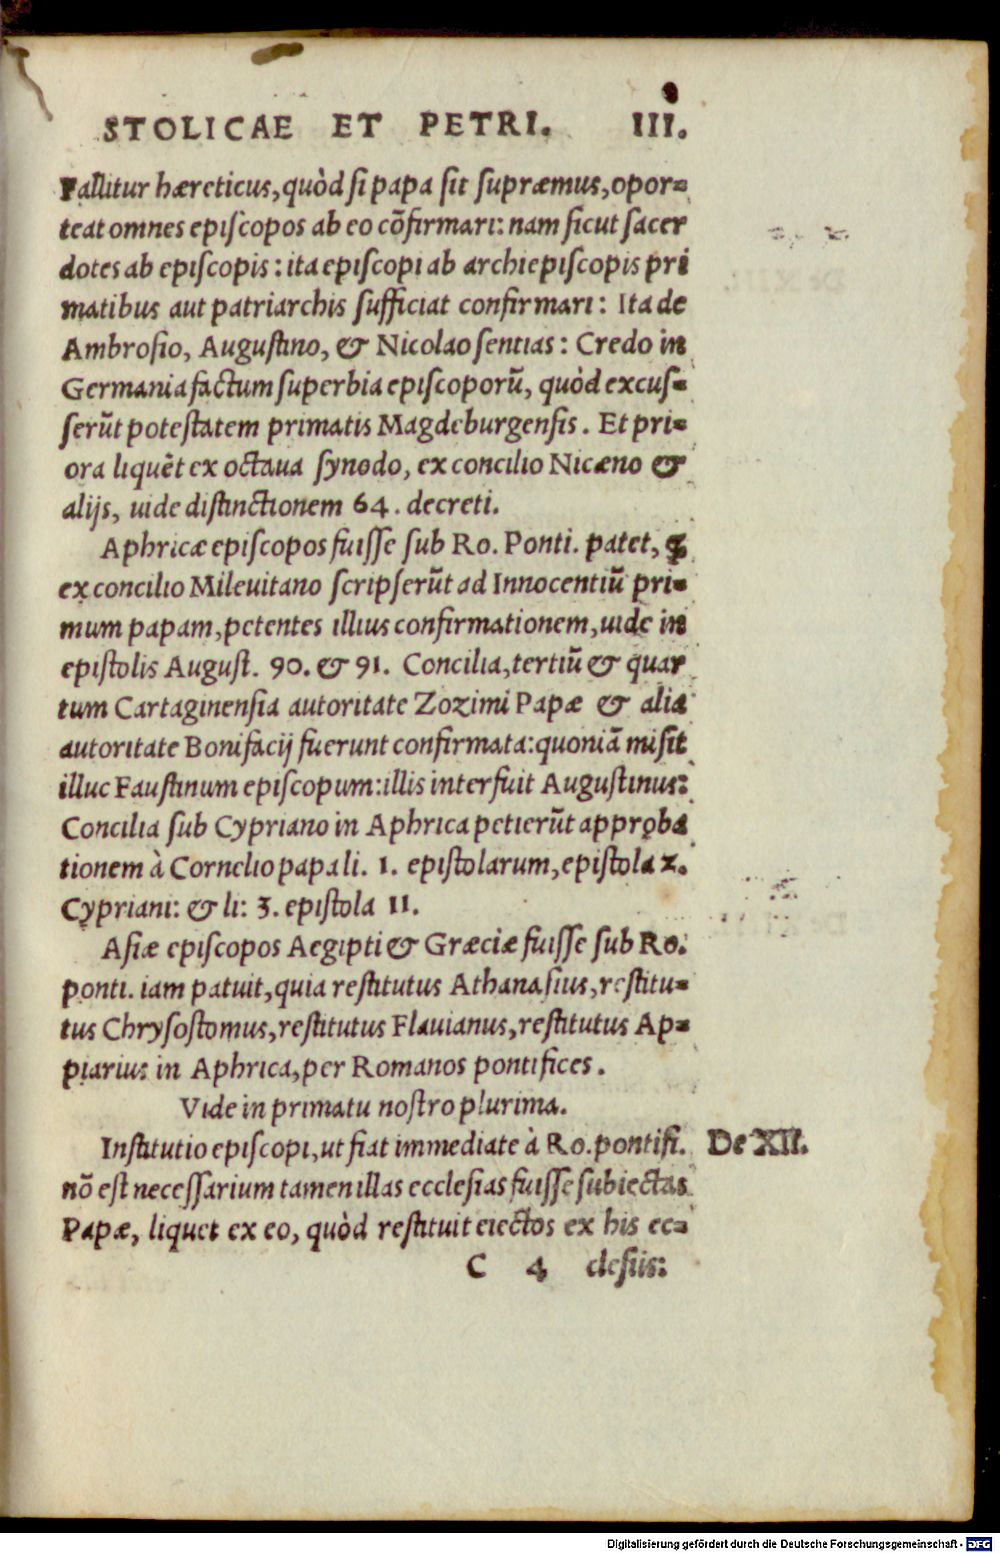 STOLICAE ET PETRI. III.
Fallitur hæreticus, quòd si papa sit supræmus, opor=
teat omnes episcopos ab eo cõfirmari: nam sicut sacer
dotes ab episcopis: ita episcopi ab archiepiscopis pri
matibus aut patriarchis sufficiat confirmari: Ita de
Ambrosio, Augustino, & Nicolao sentias: Credo in
Germania factum superbia episcoporũ, quòd excus=
serũt potestatem primatis Magdeburgensis. Et pri=
ora liquẽt ex octaua synodo, ex concilio Nicæno &
alijs, uide distinctionem 64. decreti.
Aphricæ episcopos fuisse sub Ro. Ponti. patet, ꝗ
ex concilio Mileuitano scripserũt ad Innocentiũ pri=
mum papam, petentes illius confirmationem, uide in
epistolis August. 90. & 91. Concilia, tertiũ & quar
tum Cartaginensia autoritate Zozimi Papæ & alia
autoritate Bonifacij fuerunt confirmata: quoniã misit
illuc Faustinum episcopum: illis interfuit Augustinus:
Concilia sub Cypriano in Aphrica petierũt approba
tionem à Cornelio papa li. 1. epistolarum, epistola 2.
Cypriani: & li: 3. epistola 11.
Asiæ episcopos Aegipti & Græciæ fuisse sub Ro.
ponti. iam patuit, quia restitutus Athanasius, restitu=
tus Chrysostomus, restitutus Flauianus, restitutus Ap=
piarius in Aphrica, per Romanos pontifices.
Vide in primatu nostro plurima.
Institutio episcopi, ut fiat immediate à Ro. pontifi. De XII.
nõ est necessarium tamen illas ecclesias fuisse subiectas
Papæ, liquet ex eo, quòd restituit eiectos ex his ec=
C 4 clesiis:
Digitalisierung gefördert durch die Deutsche Forschungsgemeinschaft - DFG